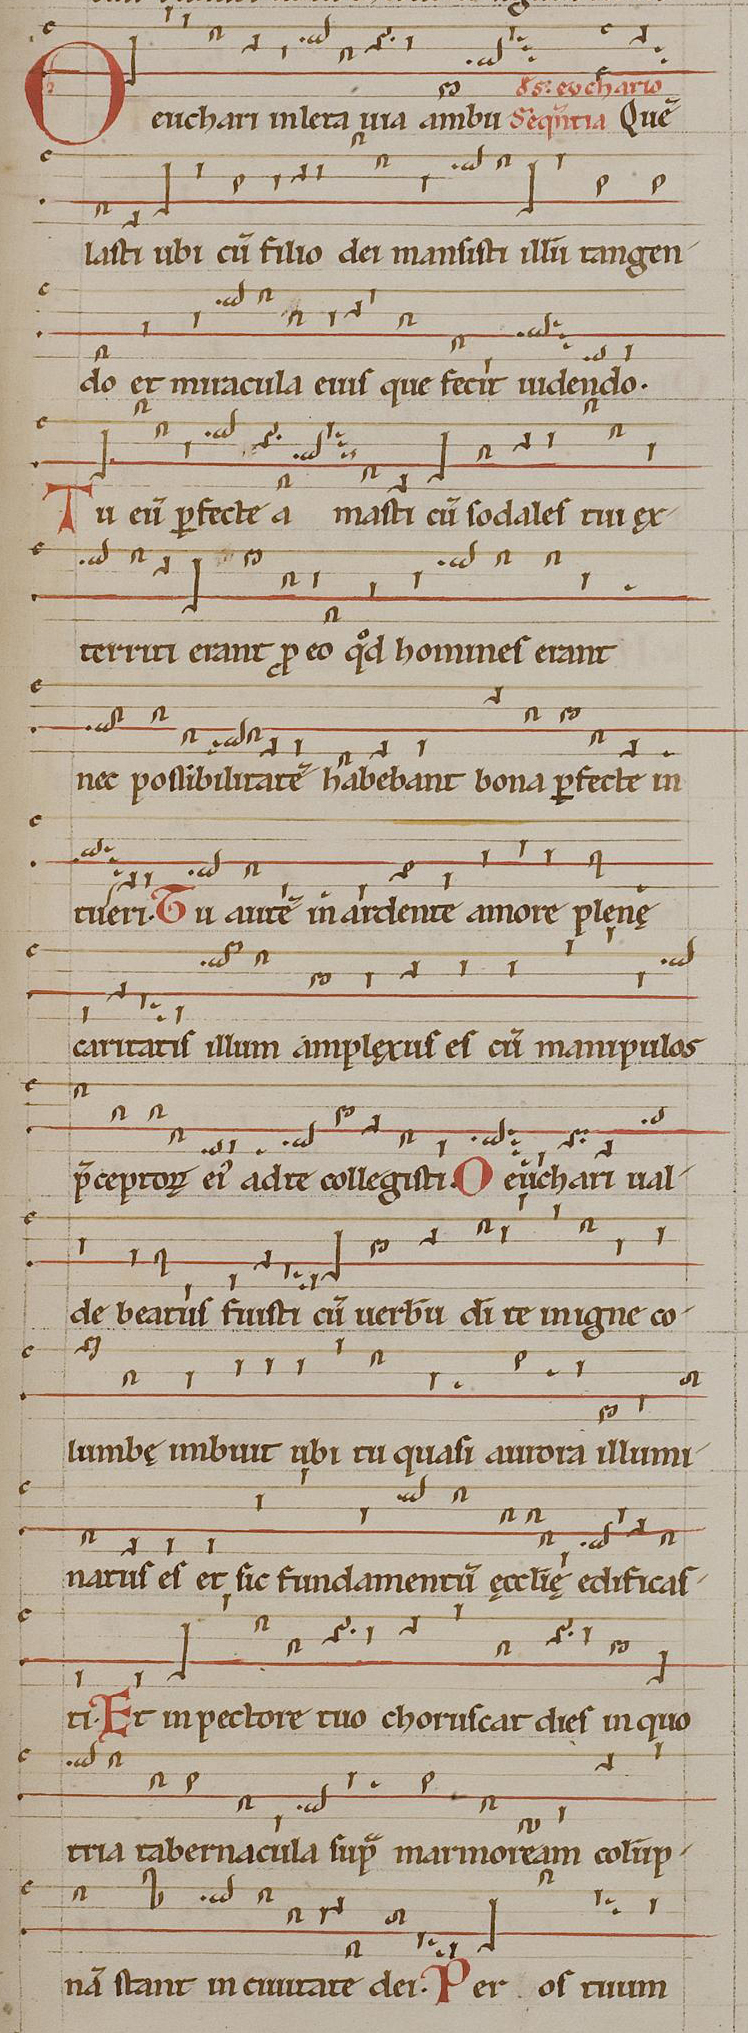 ꝶS: euchario
O euchari in leta uia ambu Seqūtia Quē
lasti ubi cū filio dei mansisti illū tangen-
do et miracula eius que fecit uidendo.
Tu eū ꝑfecte a masti cū sodales tui ex-
territi erant ꝓ eo qđ homines erant
nec possibilitatē habebant bona ꝑfecte in
tueri. Tu autē in ardente amore plenę
caritatis illum amplexus es cū manipulos
p̄ceptoꝝ eiꝰ ad te collegisti. O euchari ual-
de beatus fuisti cū uerbū di te in igne co-
lumbę imbuit ubi tu quasi aurora illumi-
natus es et sic fundamentū ęcclię edificas-
ti. Et in pectore tuo choruscat dies in quo
tria tabernacula sup̄ marmoream colūp-
nā stant in ciuitate dei. Per os tuum